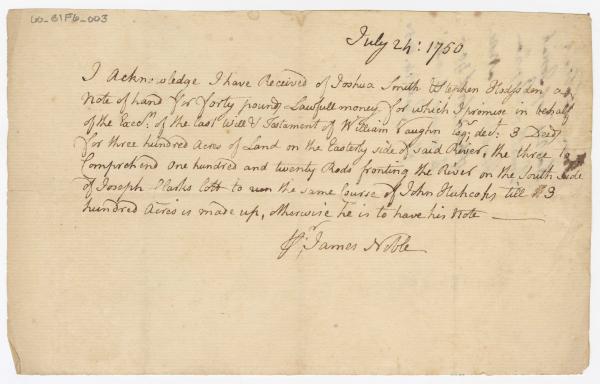 60_B1F6_003
July 24: 1750
I Acknowledge I have Received of Joshua Smith & Stephen Hodsden a
Note of hand for forty pounds Lawfull money for which I promise in behalf
of the Exec.rs of the last Will & Testament of William Vaughn Esq.r dec.d 3 Deeds
for three hundred Acres of Land on the Easterly side of said River, the three to
Comprehend One hundred and twenty Rods fronting the River on the South Side
of Joseph Clarks Lott to run the same Course of John till 3
hundred Acres is made up, otherwise he is to have his Note
James Noble